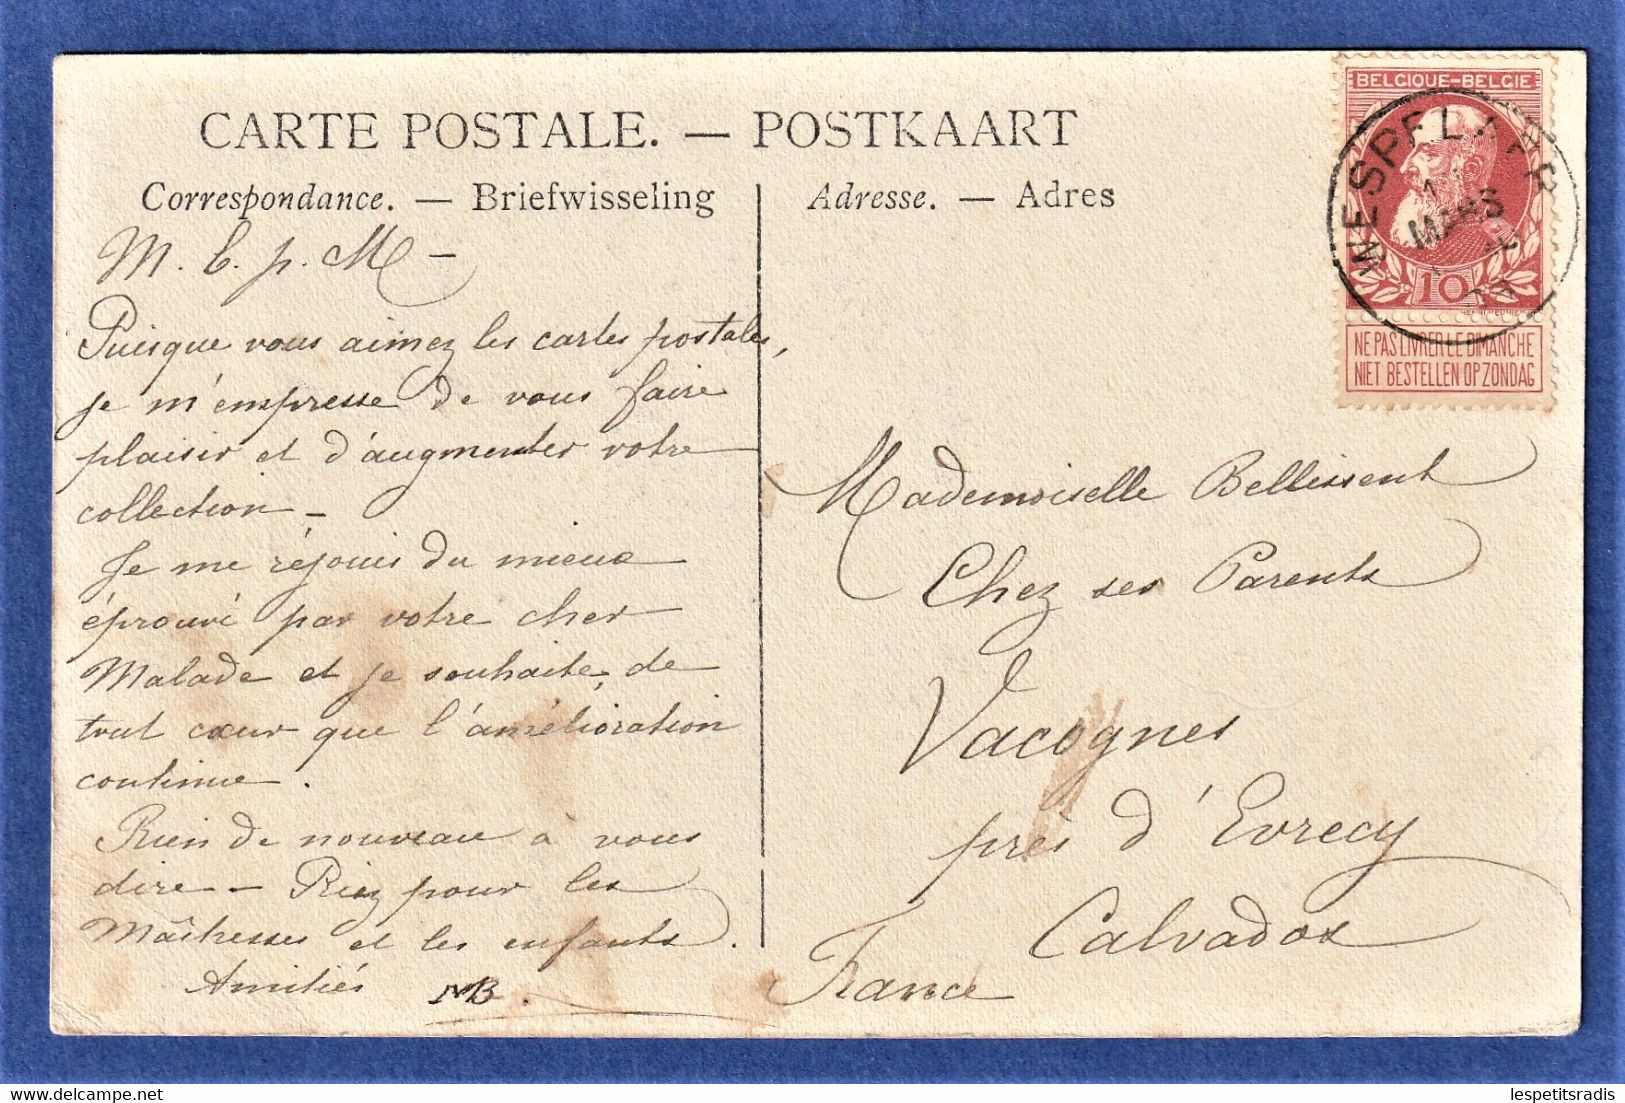 CARTE POSTALE. — POSTKAART
Correspondance. — Briefwisseling
M. b. p. M —
Puisque vous aimez les cartes postales,
je m'empresse de vous faire
plaisir et d'augmenter votre
collection —
Je me réjouis du mieux
éprouvé par votre cher
Malade et je souhaite, de
tout cœur que l'amélioration
continue.
Rien de nouveau à vous
dire — Riez pour les
Maîtresses et les enfants.
Amitiés MB.
Adresse. — Adres
BELGIQUE-BELGIE
WESPELAER
1
MARS
10
NE PAS LIVRER LE DIMANCHE
NIET BESTELLEN OP ZONDAG
Mademoiselle Bellissent
Chez ses Parents
Vacognes
près d'Evrecy
Calvados
France
lespetitsradis